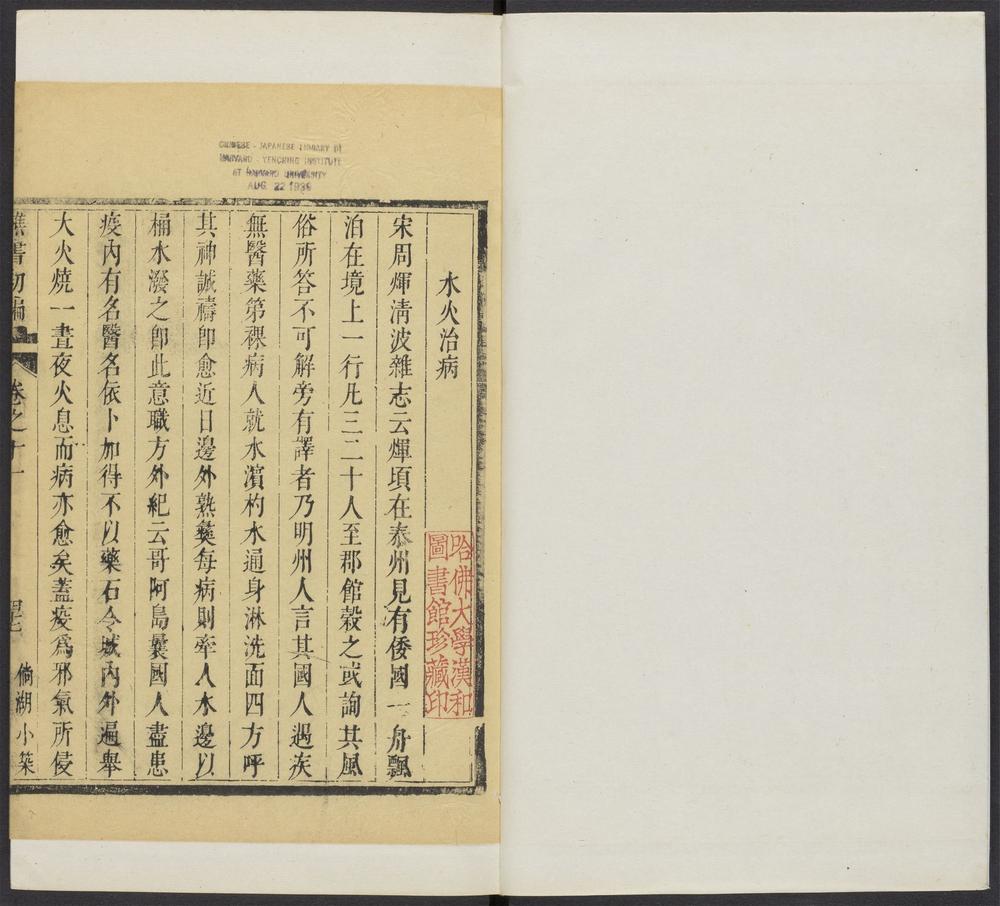 CHINESE - JAPANESE LIBRARY OF
HARVARD - YENCHING INSTITUTE
AT HARVARD UNIVERSITY
AUG 22 1939
水火治病
宋周煇淸波雜志云煇頃在泰州見有倭國一舟飄
泊在境上一行凡三二十人至郡館穀之或詢其風
俗所答不可解旁有譯者乃明州人言其國人遇疾
無醫藥第裸病人就水濱杓水通身淋洗面四方呼
其神誠禱卽愈近日邊外熟彝每病則牽人水邊以
桶水潑之卽此意職方外紀云哥阿島曩國人盡患
疫內有名醫名依卜加得不以藥石令城內外遍舉
大火燒一晝夜火息而病亦愈矣蓋疫爲邪氣所侵
樵書初編
卷之十一
倘湖小築
哈佛大學漢和
圖書館珍藏印